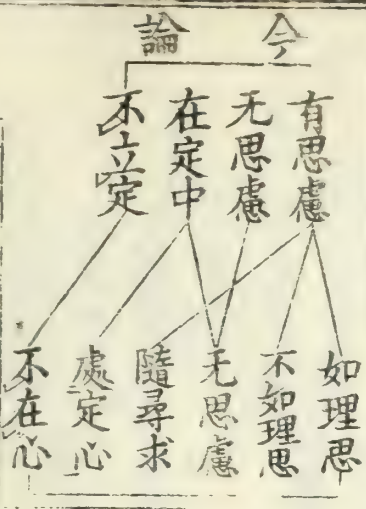 今論
有思慮
无思慮
在定中
不立定
如理思
不如理思
无思慮
隨尋求
處定心
不在心